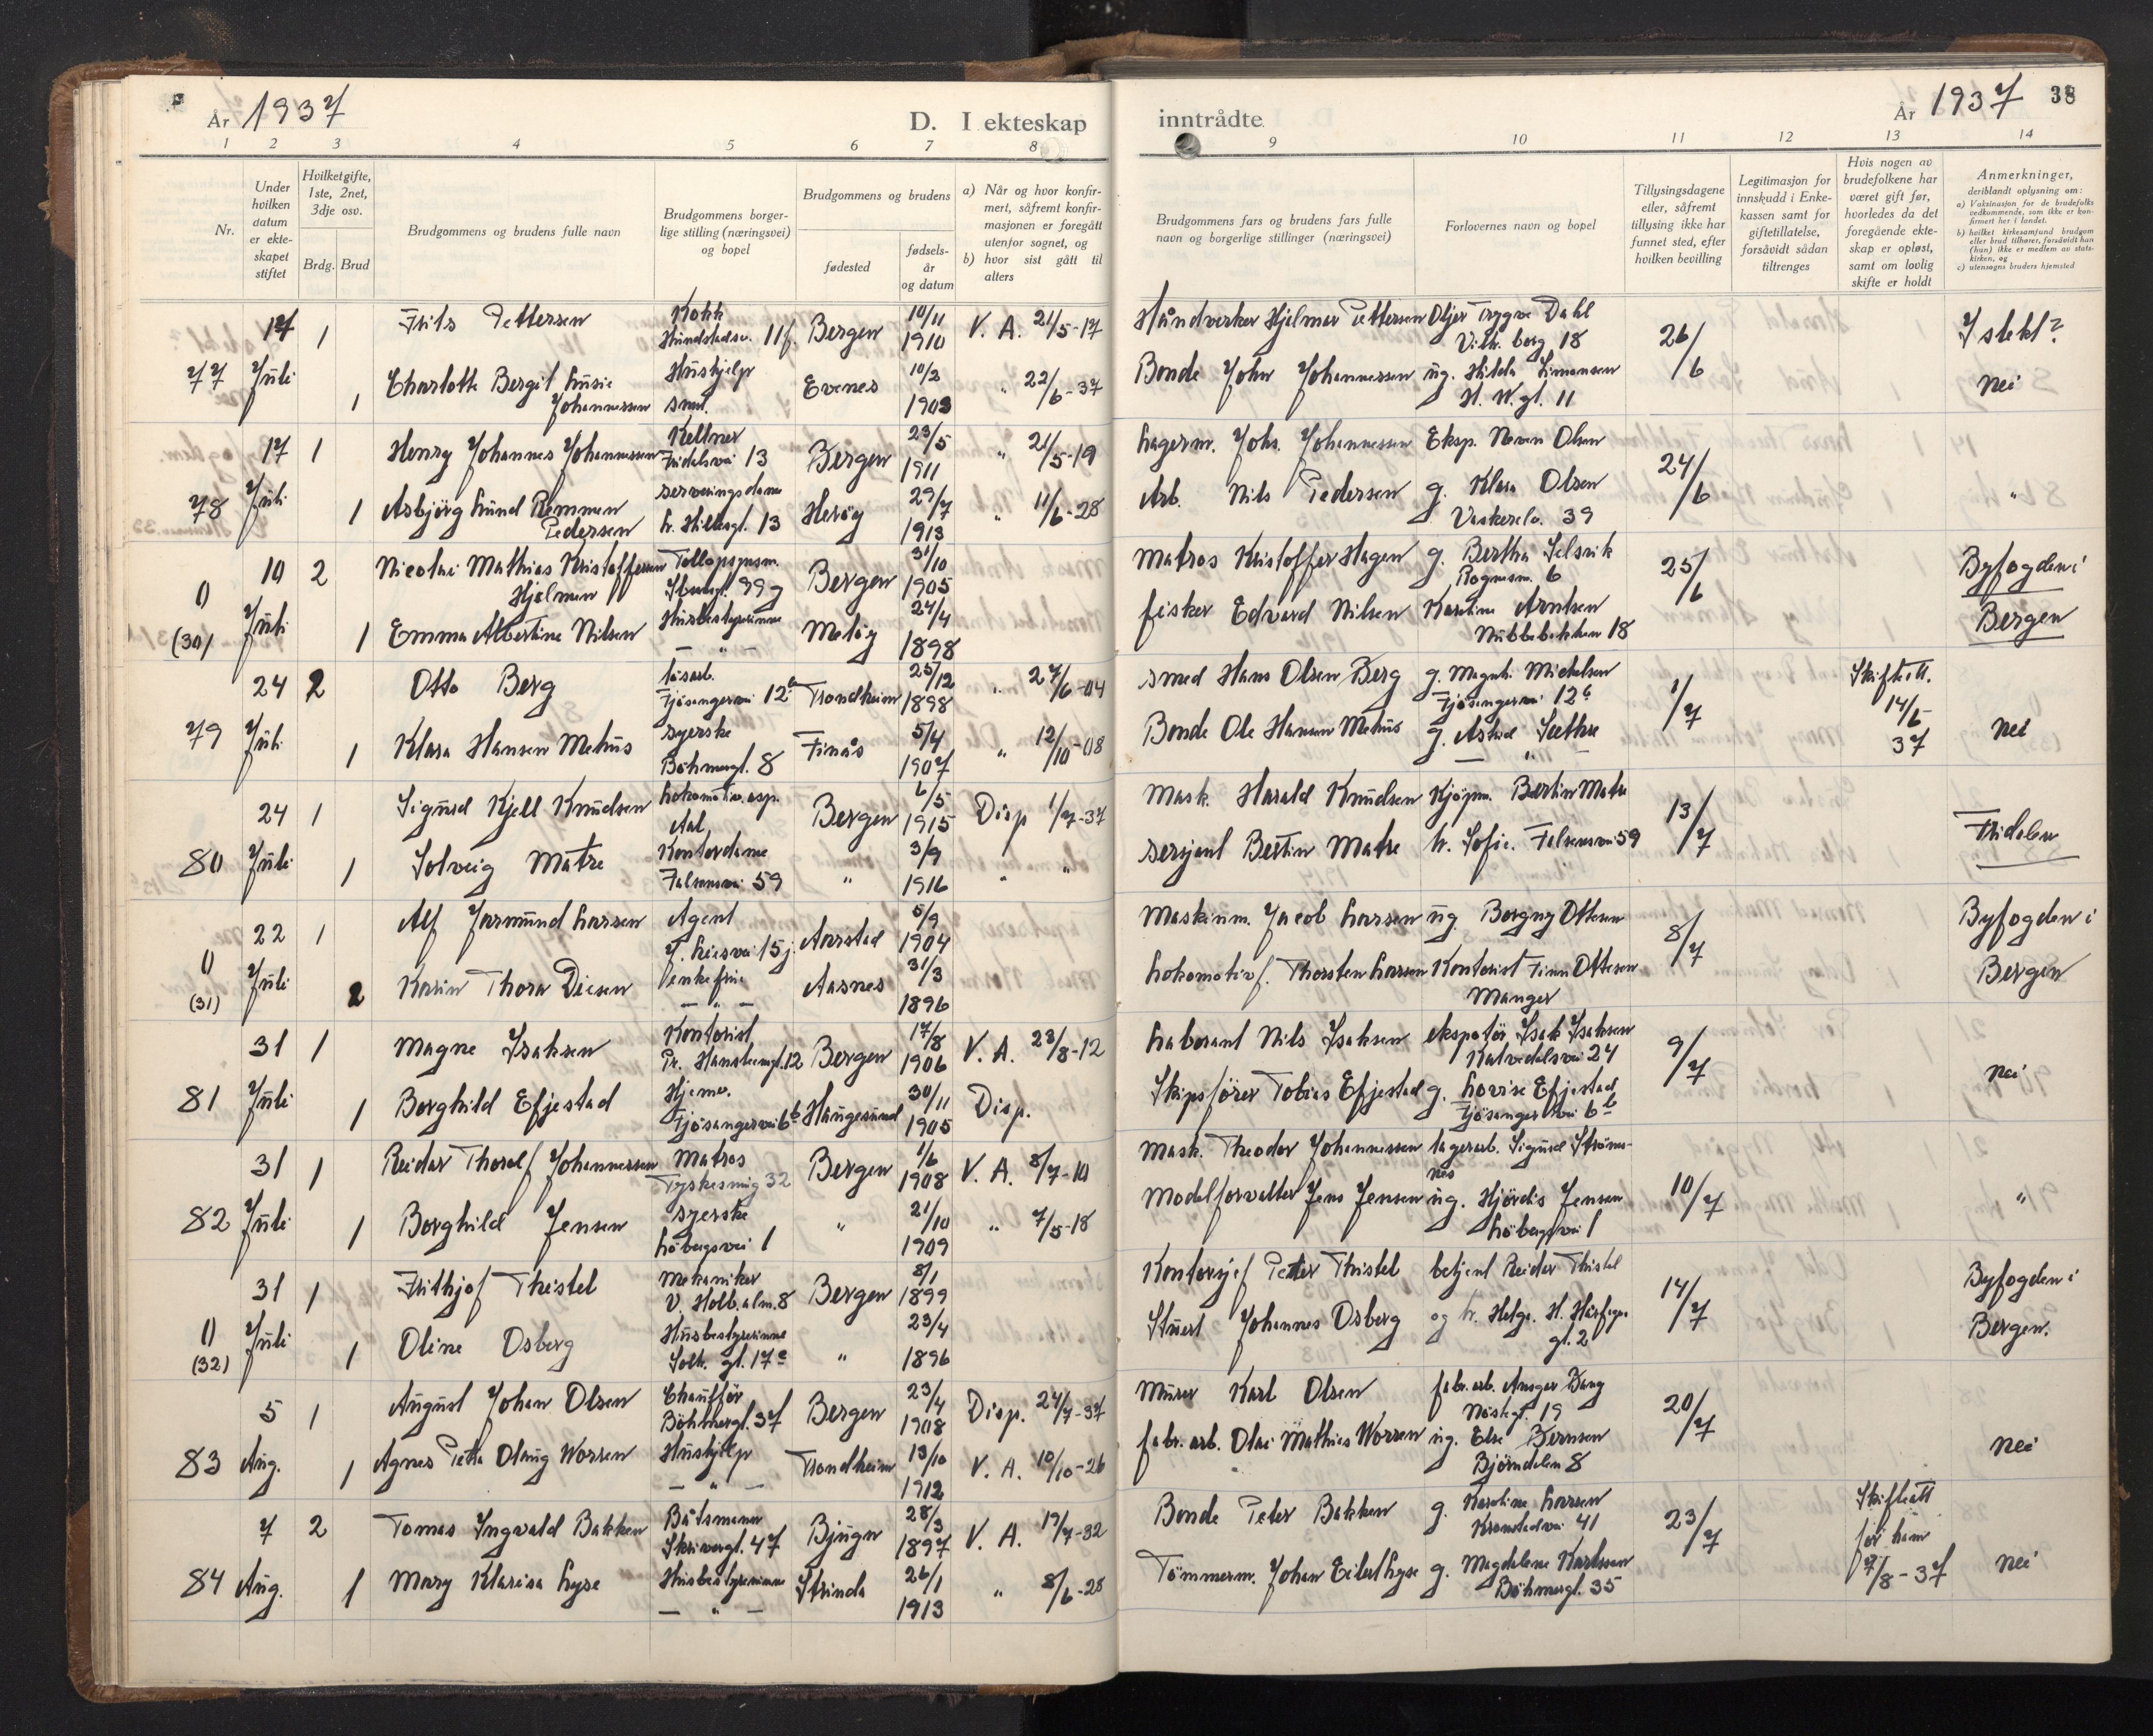 År 1937
D. I ekteskap
inntrådte
År 1937 38
1 2 3 4 5 6 7 8 9 10 11 12 13 14
Nr.
Under
hvilken
datum
er ekte-
skapet
stiftet
Hvilket gifte,
1ste, 2net,
3dje osv.
Brdg. Brud
Brudgommens og brudens fulle navn
Brudgommens borger-
lige stilling (næringsvei)
og bopel
Brudgommens og brudens
fødested
fødsels-
år
og datum
a) Når og hvor konfir-
mert, såfremt konfir-
masjonen er foregått
utenfor sognet, og
b) hvor sist gått til
alters
Brudgommens fars og brudens fars fulle
navn og borgerlige stillinger (næringsvei)
Forlovernes navn og bopel
Tillysingsdagene
eller, såfremt
tillysing ikke har
funnet sted, efter
hvilken bevilling
Legitimasjon for
innskudd i Enke-
kassen samt for
giftetillatelse,
forsåvidt sådan
tiltrenges
Hvis nogen av
brudefolkene har
været gift før,
hvorledes da det
foregående ekte-
skap er opløst,
samt om lovlig
skifte er holdt
Anmerkninger,
deriblandt oplysning om:
a) Vaksinasjon for de brudefolks
vedkommende, som ikke er kon-
firmert her i landet.
b) hvilket kirkesamfund brudgom
eller brud tilhører, forsåvidt han
(hun) ikke er medlem av stats-
kirken, og
c) utensogns bruders hjemsted
77 17 Juli 1 Frits Pettersen Kokk 11 f. Bergen 10/11 1910 V. A. 21/5-17
Håndverker Hjelmer Pettersen Oljer Trygve Dahl
Vilh. berg 18 26/6 I slekt?
1 Charlotte Bergit Lusie
Johannessen Hushjelp smst. Evenes 10/2 1903 " 22/6-37
Bonde John Johannessen ug. Hilda Simonsen
H. W. gt. 11 nei
78 17 Juli 1 Henry Johannes Johannessen Kellner Fridalsvei 13 Bergen 23/5 1911 " 21/5-19
Lagerm. Johs. Johannessen Eksp. Olsen 24/6
1 Asbjørg Lund Remmen
Pedersen serveringsdame 13 Herøy 29/7 1913 " 11/6-28
Arb. Nils Pedersen g. Klara Olsen
Vaskerelv. 39 "
() (30) 10 Juli 2 Nicolai Mathias Kristoffersen
Hjelmen Bergen 31/10 1905
Matros Kristoffer Hagen g. Bertha Selsvik
6 25/6 Byfogden i
Bergen
1 Emma Albertine Nilsen Husbestyrerinne — " — Meløy 24/4 1898
fisker Edvard Nilsen Karoline Arntsen
Nubbebakken 18
79 24 Juli 2 Otto Berg løsarb. Fjøsangervei 12 b Trondheim 25/12 1898 " 27/6-04
smed Hans Olsen Berg g. Magnh. Michelsen
Fjøsangervei 12 b 1/7 Skifteatt.
14/6
37 nei
1 Klara Hansen Mehus syerske Bøhmergt. 8 Finås 5/4 1907 " 12/10-08
Bonde Ole Hansen Mehus g. Astrid Sæthre
— " —
80 24 Juli 1 Sigurd Kjell Knudsen Lokomotiv.asp. Aal Bergen 6/5 1915 Disp 1/7-37
Mask. Harald Knudsen Kjøpm. Bertin Matre 13/7 Fridalen
1 Solveig Matre Kontordame Falsensvei 59 " 3/9 1916 " "
sersjant Bertin Matre fr. Sofie. Falsensvei 59
() (31) 22 Juli 1 Alf Jarmund Larsen Agent J. Liesvei 15 j. Aarstad 5/9 1904
Maskinm. Jacob Larsen ug. Borgny Ottesen 8/7 Byfogden i
Bergen
2 Karin Thora Diesen enkefrue — " — Aasnes 31/3 1896
Lokomotivf. Thorsten Larsen Kontorist Finn Ottesen
Manger
81 31 Juli 1 Magne Isaksen Kontorist Pr. Hansteensgt. 12 Bergen 17/8 1906 V. A. 28/8-12
Laborant Nils Isaksen ekspeditør Isak Isaksen
Kalvedalsvei 24 9/7 nei
1 Borghild Efjestad Hjemv. Fjøsangervei 6 b Haugesund 30/11 1905 Disp.
Skipsfører Tobias Efjestad g. Lovise Efjestad
Fjøsangervei 6 b
82 31 Juli 1 Reidar Thoralf Johannessen Matros Tyskesmug 32 Bergen 1/6 1908 V. A. 8/7-10
Mask. Theodor Johannessen lagerarb. Sigurd Strøms-
nes 10/7 "
1 Borghild Jensen syerske Løbergsvei 1 " 21/10 1909 " 7/5-18
Modelforvalter Jens Jensen ug. Hjørdis Jensen
Løbergsvei 1
() (32) 31 Juli 1 Frithjof Thistel Mekaniker V. Holb. alm. 8 Bergen 8/1 1899
Kontorsjef Petter Thistel betjent Reidar Thistel 14/7 Byfogden i
Bergen.
1 Oline Osberg Husbestyrerinne Solh. gt. 17 c " 23/4 1896
Stuert Johannes Osberg og fr. Helga. H. Hårfagre
gt. 2
83 5 Aug. 1 August Johan Olsen Chauffør Bøhmergt. 37 Bergen 23/4 1908 Disp. 24/7-37
Murer Karl Olsen fabr. arb. Ansgar Bang
Nøstegt. 19 20/7 nei
1 Agnes Petra Olaug Worsen Hushjelp — " — Trondheim 13/10 1912 V. A. 10/10-26
fabr. arb. Olai Mathias Worsen ug. Else Berntsen
Bjørndalen 8
84 7 Aug. 2 Tomas Ingvald Bakken Båtsmann Skrivergt. 47 Bjugn 28/3 1897 V. A. 19/7-32
Bonde Peter Bakken g. Karoline Larsen
Kronstadvei 41 23/7 Skifteatt
for ham
7/8-37 nei
1 Mary Klarisa Lyse Husbestyrerinne — " — Strinda 26/1 1913 " 8/6-28
Tømmerm. Johan Eilert Lyse g. Magdalene Karlsen
Bøhmergt. 35